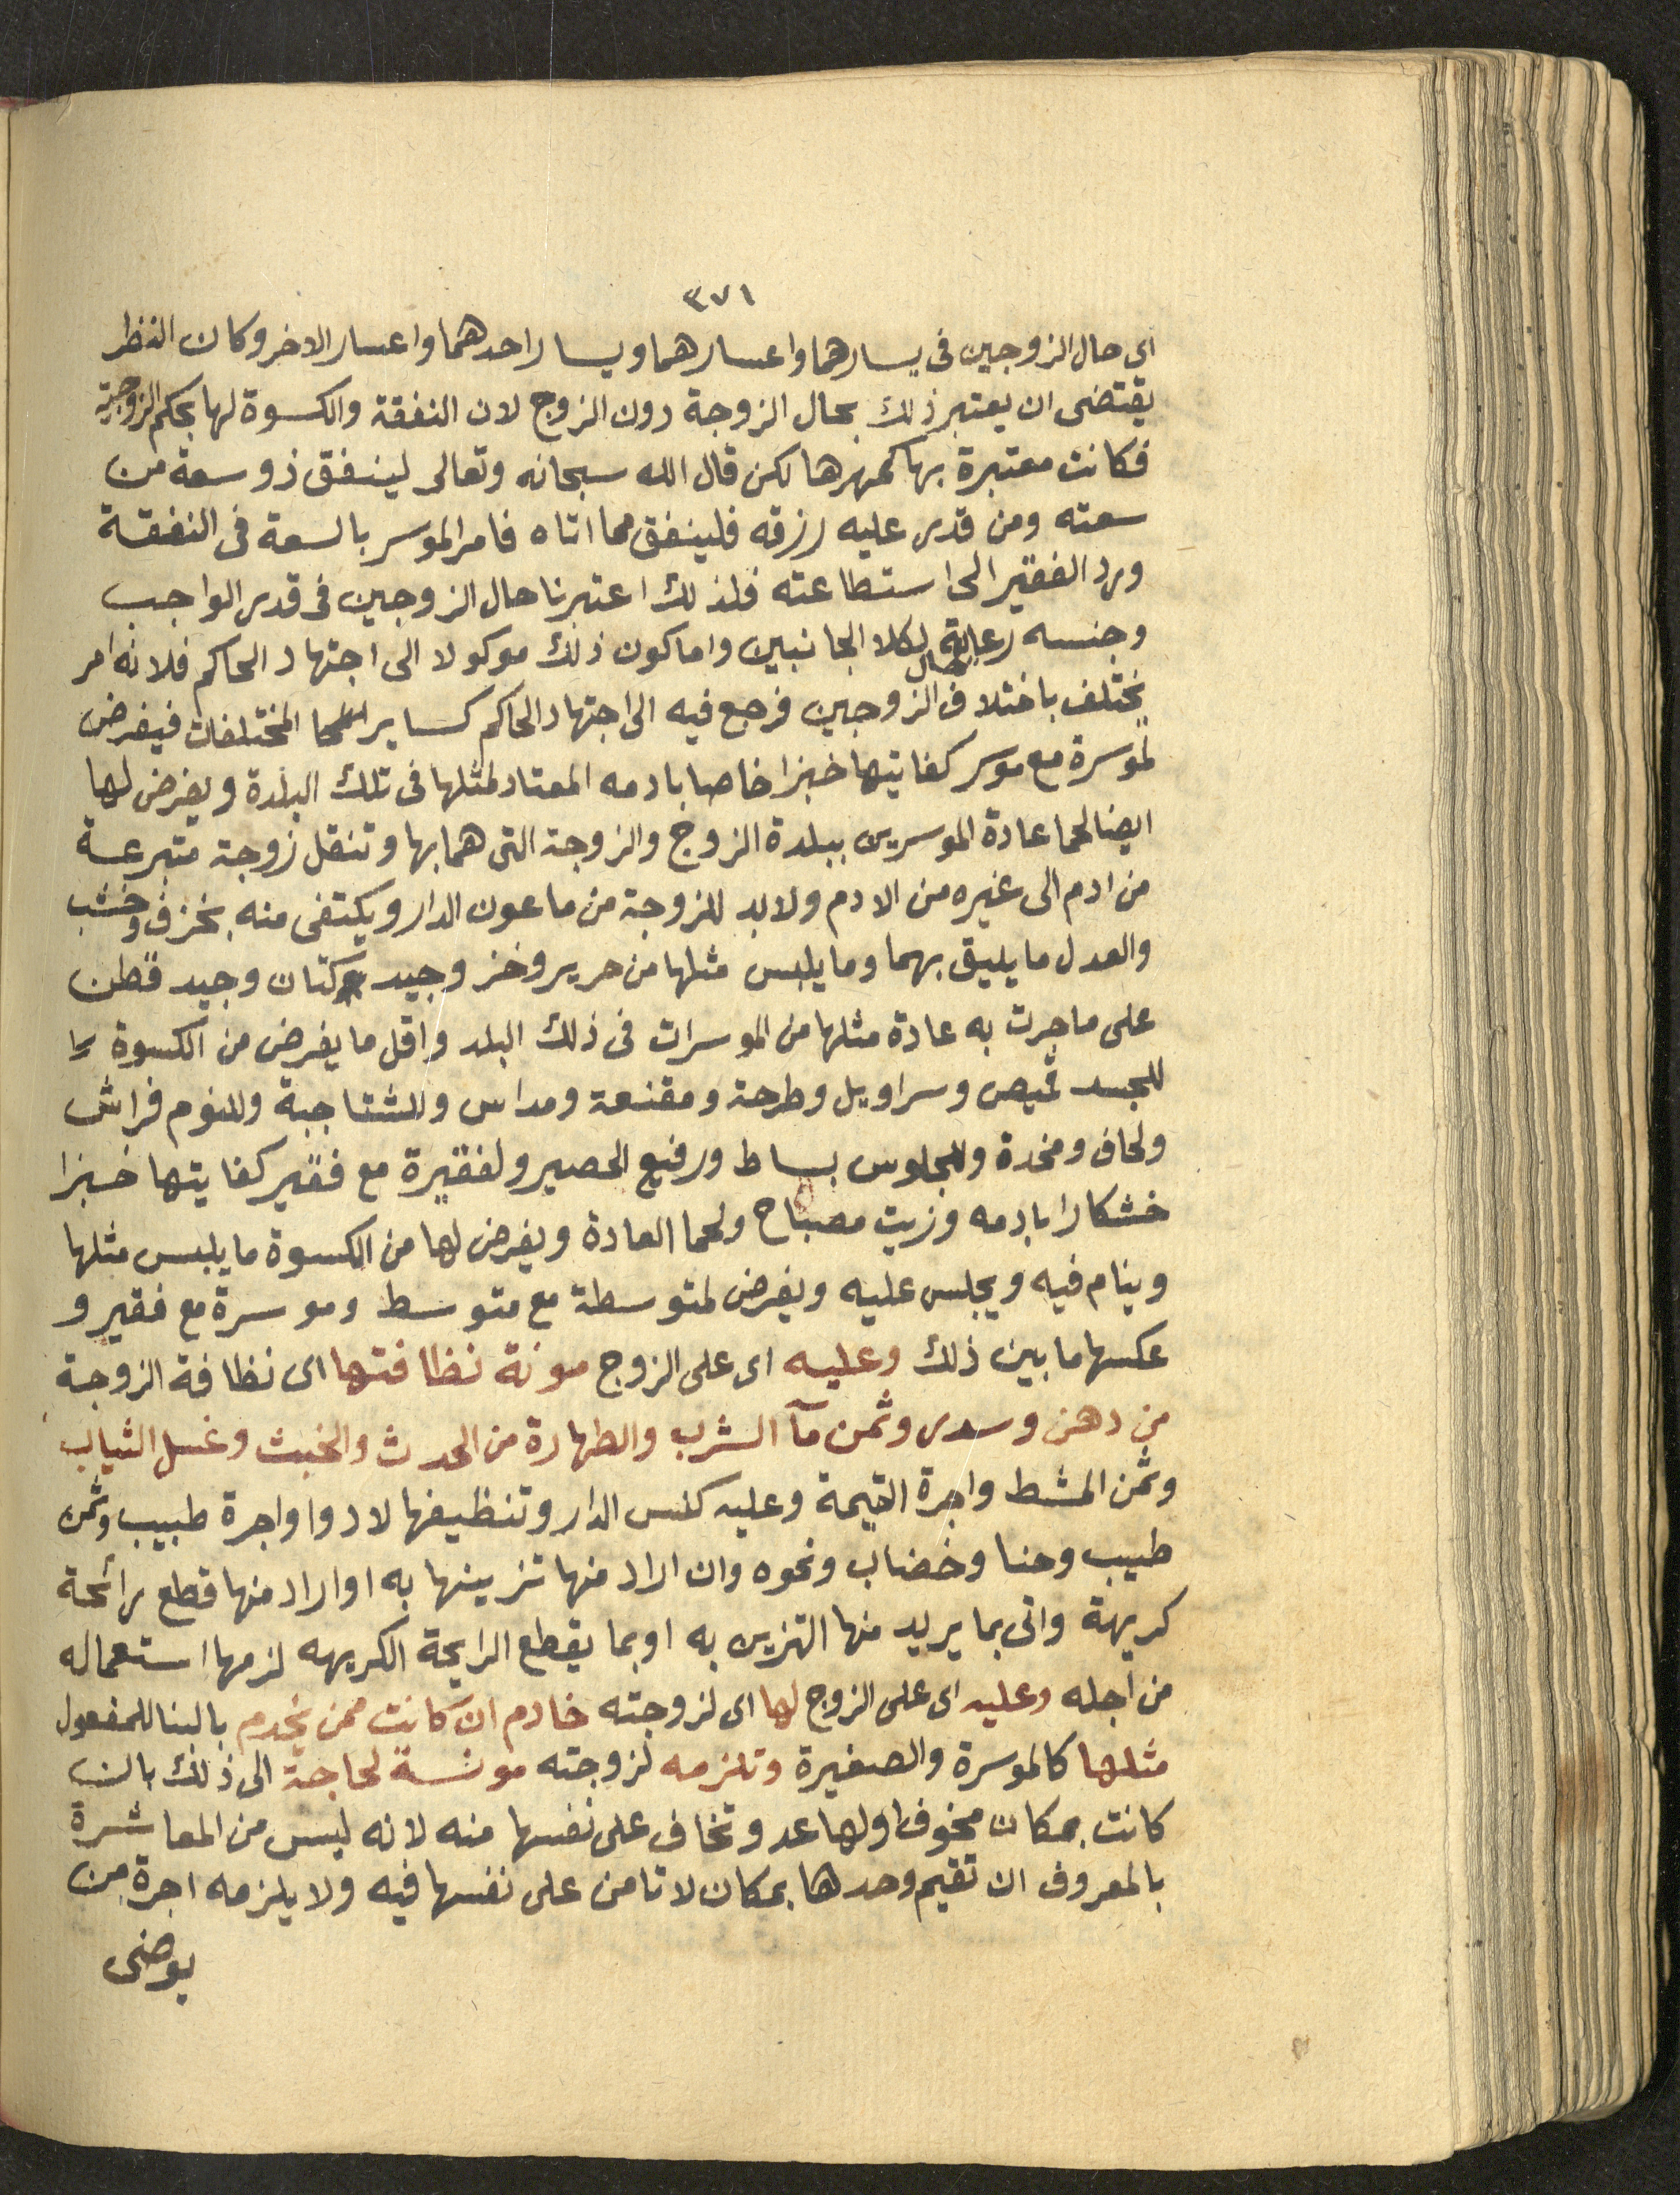 ٣٧١
اى حال الزوجين فى يسارهما واعسارهما ويسار احدهما واعسار الاخر وكان النظر
يقتضى ان يعتبر ذلك بحال الزوجة دون الزوج لان النفقة والكسوة لها بحكم الزوجية
فكانت معتبرة بها كمهرها لكن قال الله سبحانه وتعالى لينفق ذو سعة من
سعته ومن قدر عليه رزقه فلينفق مما اتاه فامر الموسر بالسعة فى النفقة
ورد الفقير الى استطاعته فلذلك اعتبرنا حال الزوجين فى قدر الواجب
وجنسه رعاية لكلا الجانبين واما كون ذلك موكولا الى اجتهاد الحاكم فلانه امر
يختلف باختلاف حال الزوجين فرجع فيه الى اجتهاد الحاكم كساير المختلفات فيفرض
لموسرة مع موسر كفايتها خبزا خاصا بادمه المعتاد لمثلها فى تلك البلدة ويفرض لها
ايضا لحما عادة الموسرين ببلدة الزوج والزوجة التى هما بها وتنقل زوجة متبرعة
من ادم الى غيره من الادم ولابد للزوجة من ماعون الدار ويكتفى منه بخزف وخشب
والعدل ما يليق بهما وما يلبس مثلها من حرير وخز وجيد كتان وجيد قطن
على ما جرت به عادة مثلها من الموسرات فى ذلك البلد واقل ما يفرض من الكسوة
للجسد قميص وسراويل وطرحة ومقنعة ومداس وللشتا جبة وللنوم فراش
ولحاف ومخدة وللجلوس بساط ورفيع الحصير ولفقيرة مع فقير كفايتها خبزا
خشكارا بادمه وزيت مصباح ولحما العادة ويفرض لها من الكسوة ما يلبس مثلها
وينام فيه ويجلس عليه ويفرض لمتوسطة مع متوسط وموسرة مع فقير و
عكسها ما بين ذلك وعليه اى على الزوج مونة نظافتها اى نظافة الزوجة
من دهن وسدر وثمن مآ الشرب والطهارة من الحدث والخبث وغسل الثياب
وثمن المشط واجرة القيمة وعليه كنس الدار وتنظيفها لا دوا واجرة طبيب وثمن
طيب وحنا وخضاب ونحوه وان اراد منها تزيينها به او اراد منها قطع رائحة
كريهة واتى بما يريد منها التزين به او بما يقطع الرايحة الكريهه لزمها استعماله
من اجله وعليه اى على الزوج لها اى لزوجته خادم ان كانت ممن يخدم بالبنا للمفعول
مثلها كالموسرة والصغيرة وتلزمه لزوجته مونسة لحاجة الى ذلك بان
كانت بمكان مخوف او لها عدو تخاف على نفسها منه لانه ليس من المعاشرة
بالمعروف ان تقيم وحدها بمكان لا تامن على نفسها فيه ولا يلزمه اجرة من
يوضى